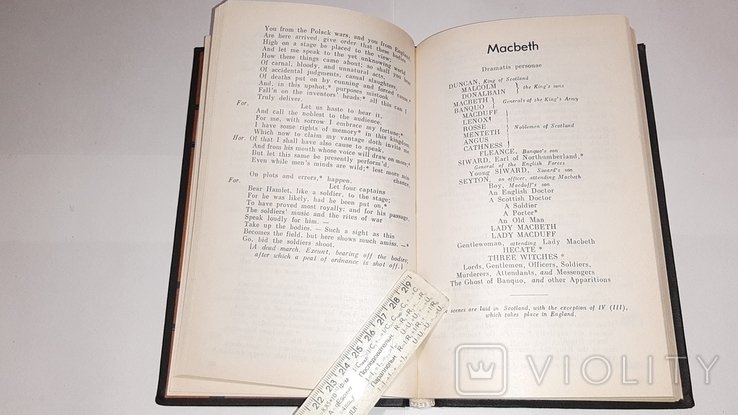 You from the Polack wars, and you from England,
Are here arrived, give order that these bodies
High on a stage be placed to the view;
And let me speak to the yet unknowing world
How these things came about: so shall you hear
Of carnal, bloody, and unnatural acts,
Of accidental judgments, casual slaughters,
Of deaths put on by cunning and forced cause,
And, in this upshot,* purposes mistook
Fall'n on the inventors' heads:* all this can I
Truly deliver.
For. Let us haste to hear it,
And call the noblest to the audience.
For me, with sorrow I embrace my fortune;*
I have some rights of memory* in this kingdom,
Which now to claim my vantage doth invite me.
Hor. Of that I shall have also cause to speak,
And from his mouth whose voice will draw on more:*
But let this same be presently perform'd,
Even while men's minds are wild;* lest more mischance,
On plots and errors,* happen.
For. Let four captains
Bear Hamlet, like a soldier, to the stage;
For he was likely, had he been put on,*
To have proved most royally: and for his passage,
The soldiers' music and the rites of war
Speak loudly for him. —
Take up the bodies. — Such a sight as this
Becomes the field, but here shows much amiss. —*
Go, bid the soldiers shoot.
[A dead march. Exeunt, bearing off the bodies;
after which a peal of ordnance is shot off.]
Macbeth
Dramatis personae
DUNCAN, King of Scotland
MALCOLM
DONALBAIN
the King's sons
MACBETH
BANQUO
Generals of the King's Army
MACDUFF
LENOX*
ROSSE
MENTETH
ANGUS
CATHNESS
Noblemen of Scotland
FLEANCE, Banquo's son
SIWARD, Earl of Northumberland,*
General of the English Forces
Young SIWARD, Siward's son
SEYTON, an officer, attending Macbeth
Boy, Macduff's son
An English Doctor
A Scottish Doctor
A Soldier
A Porter*
An Old Man
LADY MACBETH
LADY MACDUFF
Gentlewoman, attending Lady Macbeth
HECATE *
THREE WITCHES *
Lords, Gentlemen, Officers, Soldiers,
Murderers, Attendants, and Messengers
The Ghost of Banquo, and other Apparitions
scenes are laid in Scotland, with the exception of IV (III),
which takes place in England.
212 213 214 215 216 217 218 219
VIOLITY